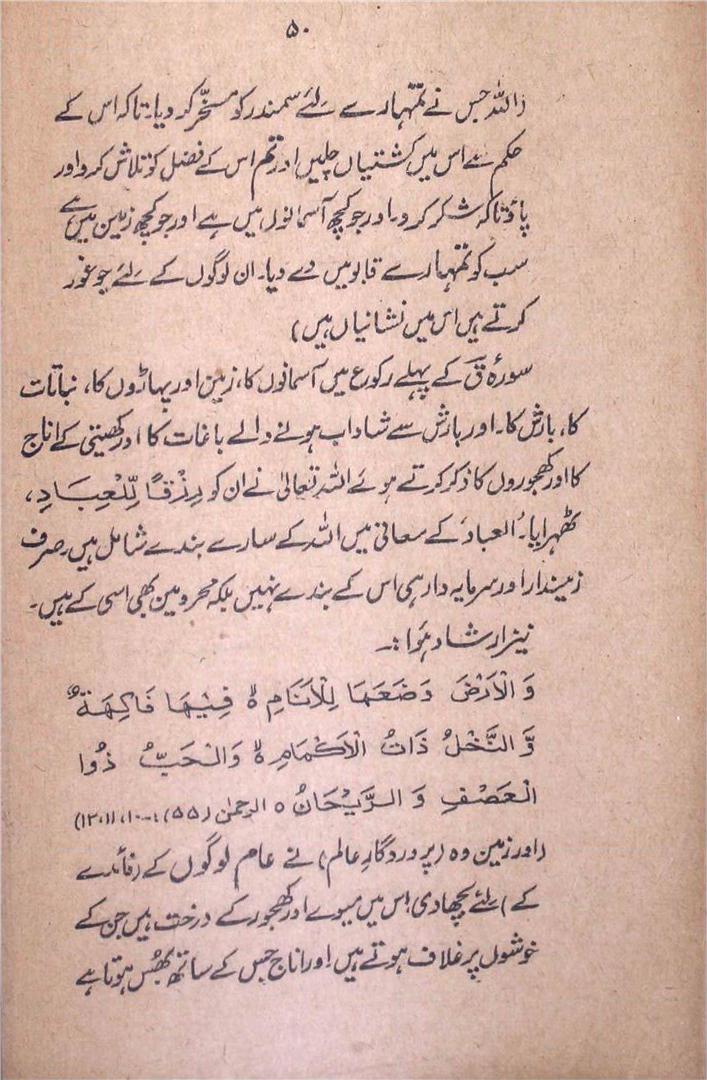 ۵۰
(اللہ جس نے تمہارے لئے سمندر کو مسخّر کر دیا۔ تاکہ اس کے
حکم سے اس میں کشتیاں چلیں اور تم اس کے فضل کو تلاش کرو اور
پاؤ تاکہ شکر کرو۔ اور جو کچھ آسمانوں میں ہے اور جو کچھ زمین میں ہے
سب کو تمہارے قابو میں دے دیا۔ ان لوگوں کے لئے جو غور
کرتے ہیں اس میں نشانیاں ہیں)
سورۂ قٓ کے پہلے رکوع میں آسمانوں کا، زمین اور پہاڑوں کا، نباتات
کا، بارش کا۔ اور بارش سے شاداب ہونے والے باغات کا اور کھیتی کے اناج
کا اور کھجوروں کا ذکر کرتے ہوئے اللہ تعالیٰ نے ان کو رِزْقًا لِّلْعِبَادِ،
ٹھہرایا۔ 'العباد' کے معانی میں اللہ کے سارے بندے شامل ہیں۔ صرف
زمیندار اور سرمایہ دار ہی اس کے بندے نہیں بلکہ محرومین بھی اسی کے ہیں۔
نیز ارشاد ہُوا :۔
وَ الْاَرْضَ وَضَعَهَا لِلْاَنَامِ ۙ فِیْهَا فَاكِهَةٌ
وَّ النَّخْلُ ذَاتُ الْاَكْمَامِ ۙ وَالْحَبُّ ذُوا
الْعَصْفِ وَ الرَّیْحَانُ ۝ الرحمٰن (۵۵) ۱۰، ۱۱، ۱۲)
(اور زمین وہ (پروردگارِ عالم) نے عام لوگوں کے (فائدے
کے) لئے بچھا دی! اس میں میوے اور کھجور کے درخت ہیں جن کے
خوشوں پر غلاف ہوتے ہیں اور اناج جس کے ساتھ بھُس ہوتا ہے